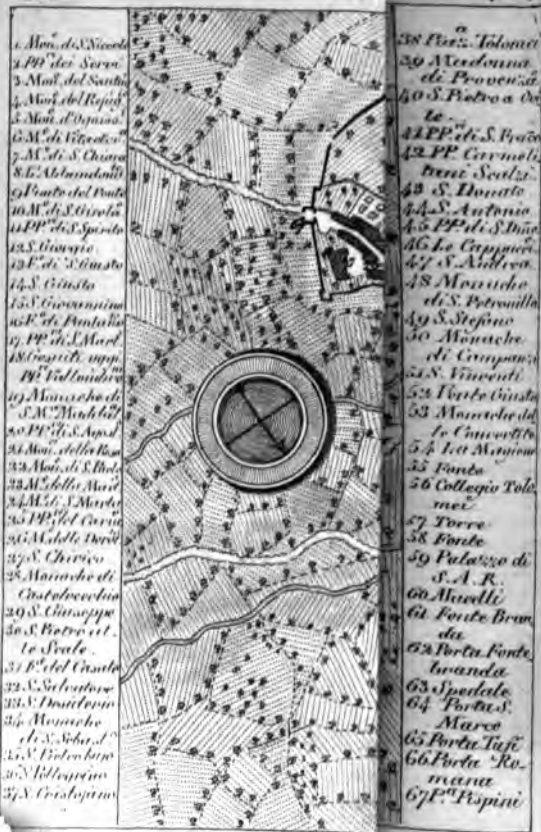 1. Mon. di S. Niccolo
2. PP. dei Servi
3. Mon. del Santuc
4. Mon. del Refug.
5. Mon. d'Ogniss.
6. M. di
7. M. di S. Chiara
8. L'Abbandonà
9. Fonte del Ponte
10. M. di S. Girola
11. PP. di S. Spirito
12. S. Giorgio
13. F. di S. Giusto
14. S. Giusto
15. S. Giovannino
16. F. di Pantan
17. PP. di S. Mart.
18. Gesuiti oggi
PP.
19. Monache di
S. M. Madd.
20. PP. di S. Agost.
21. Mon. della Rosa
22. Mon. di S. Paolo
23. M. della
24. M. di S. Marta
25. PP. del Carm
26. M. delle
27. S. Chirico
28. Monache di
Castelvecchio
29. S. Giuseppe
30. S. Pietro
le Scale
31. F. del Casato
32. S. Salvatore
33. S. Desiderio
34. Monache
di S. Seba.
35. S.
36. S. Pellegrino
37. S. Cristofano
38 Piaz. Tolomei
39 Madonna
di Provenzà
40 S. Pietro a Ovi
le
41 PP. di S. Franc
42 PP. Carmeli
tani Scalzi
43 S. Donato
44 S. Antonio
45 PP. di S. Dom
46 Le Cappucci
47 S. Andrea
48 Monache
di S. Petronilla
49 S. Stefano
50 Monache
di Campan
51 S. Vincenti
52 Fonte Giusta
53 Monache del
le Convertite
54 La Magione
55 Fonte
56 Collegio Tolo
mei
57 Torre
58 Fonte
59 Palazzo di
S. A. R.
60 Macelli
61 Fonte Bran
da
62 Porta Fonte
branda
63 Spedale
64 Porta S.
Marco
65 Porta Tufi
66 Porta Ro-
mana
67 P.a Pispini